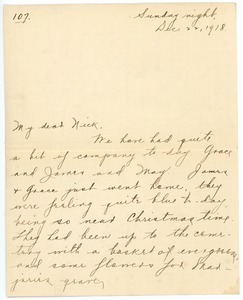 107.
Sunday night,
Dec 22, 1918
My dear Nick.
We have had quite
a bit of company to day Grace
and James and May. James
& Grace just went home. they
were feeling quite blue to day,
being so near Christmas time.
They had been up to the ceme-
tery with a basket of evergreens
and some flowers for Mad-
jories grave,